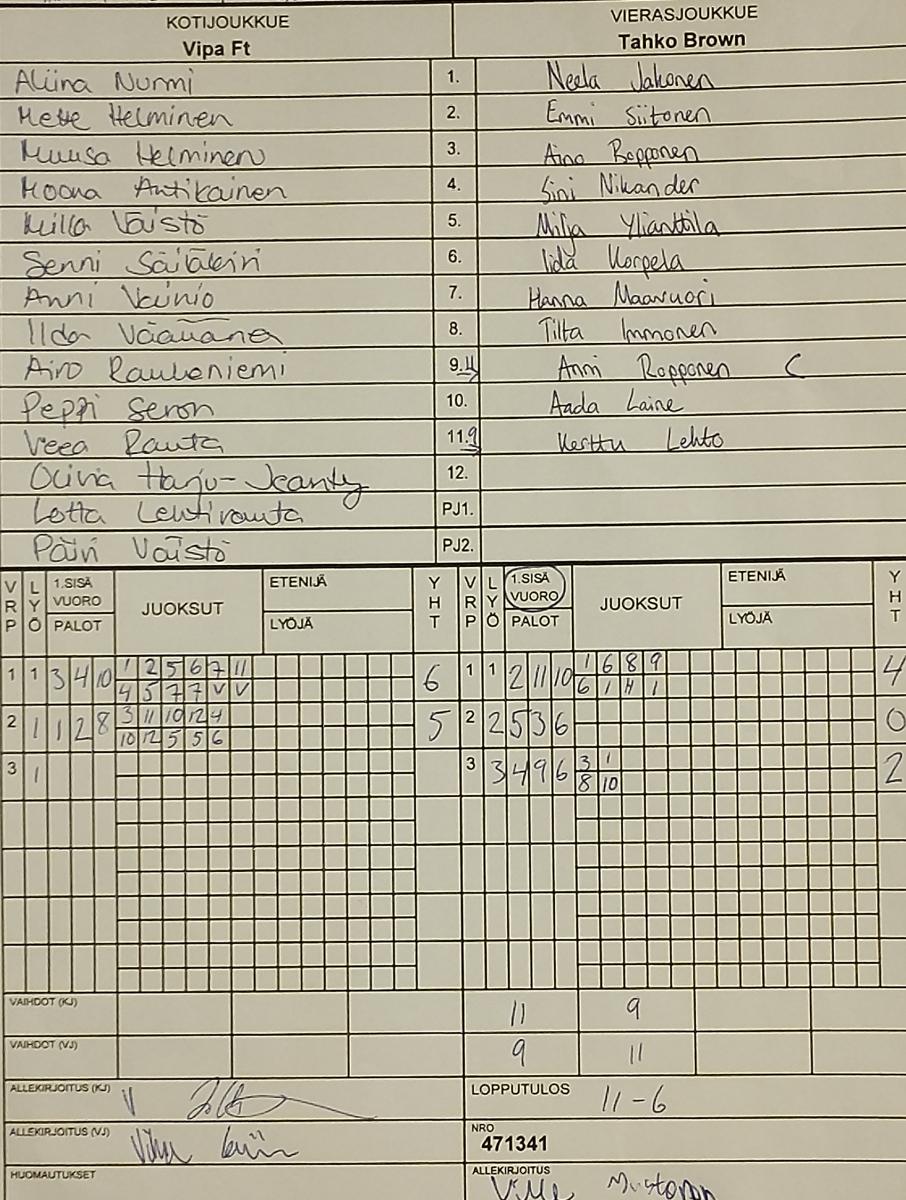 KOTIJOUKKUE VIERASJOUKKUE
Vipa Ft Tahko Brown
Aliina Nurmi 1. Neela Jakonen
Mette Helminen 2. Emmi Siitonen
Muusa Helminen 3. Aino Ropponen
Moona Antikainen 4. Sini Nikander
Milla Väistö 5. Milja Ylianttila
Senni 6. Iida Korpela
Anni Vainio 7. Hanna Maavuori
Iida 8. Tilta Immonen
Aino Raukeniemi 9. Anni Ropponen C
Peppi Seron 10. Aada Laine
Veea Rauta 11. 9 Kerttu Lehto
Olivia Harju-Jeanty 12.
Lotta Lehtiranta PJ1.
Päivi Väistö PJ2.
VRP LYÖ 1.SISÄ VUORO JUOKSUT ETENIJÄ YHT VRP LYÖ 1.SISÄ VUORO JUOKSUT ETENIJÄ YHT
PALOT LYÖJÄ PALOT LYÖJÄ
1 1 3 4 10 1 2 5 6 7 11 6 1 1 2 11 10 1 6 8 9 4
4 5 7 7 V V 6 1 H 1
2 1 1 2 8 3 11 10 12 4 5 2 2 5 3 6 0
10 12 5 5 6
3 1 3 3 4 9 6 3 1 2
8 10
VAIHDOT (KJ) 11 9
VAIHDOT (VJ) 9 11
ALLEKIRJOITUS (KJ) LOPPUTULOS 11-6
ALLEKIRJOITUS (VJ) NRO
471341
HUOMAUTUKSET ALLEKIRJOITUS
Ville Mustonen